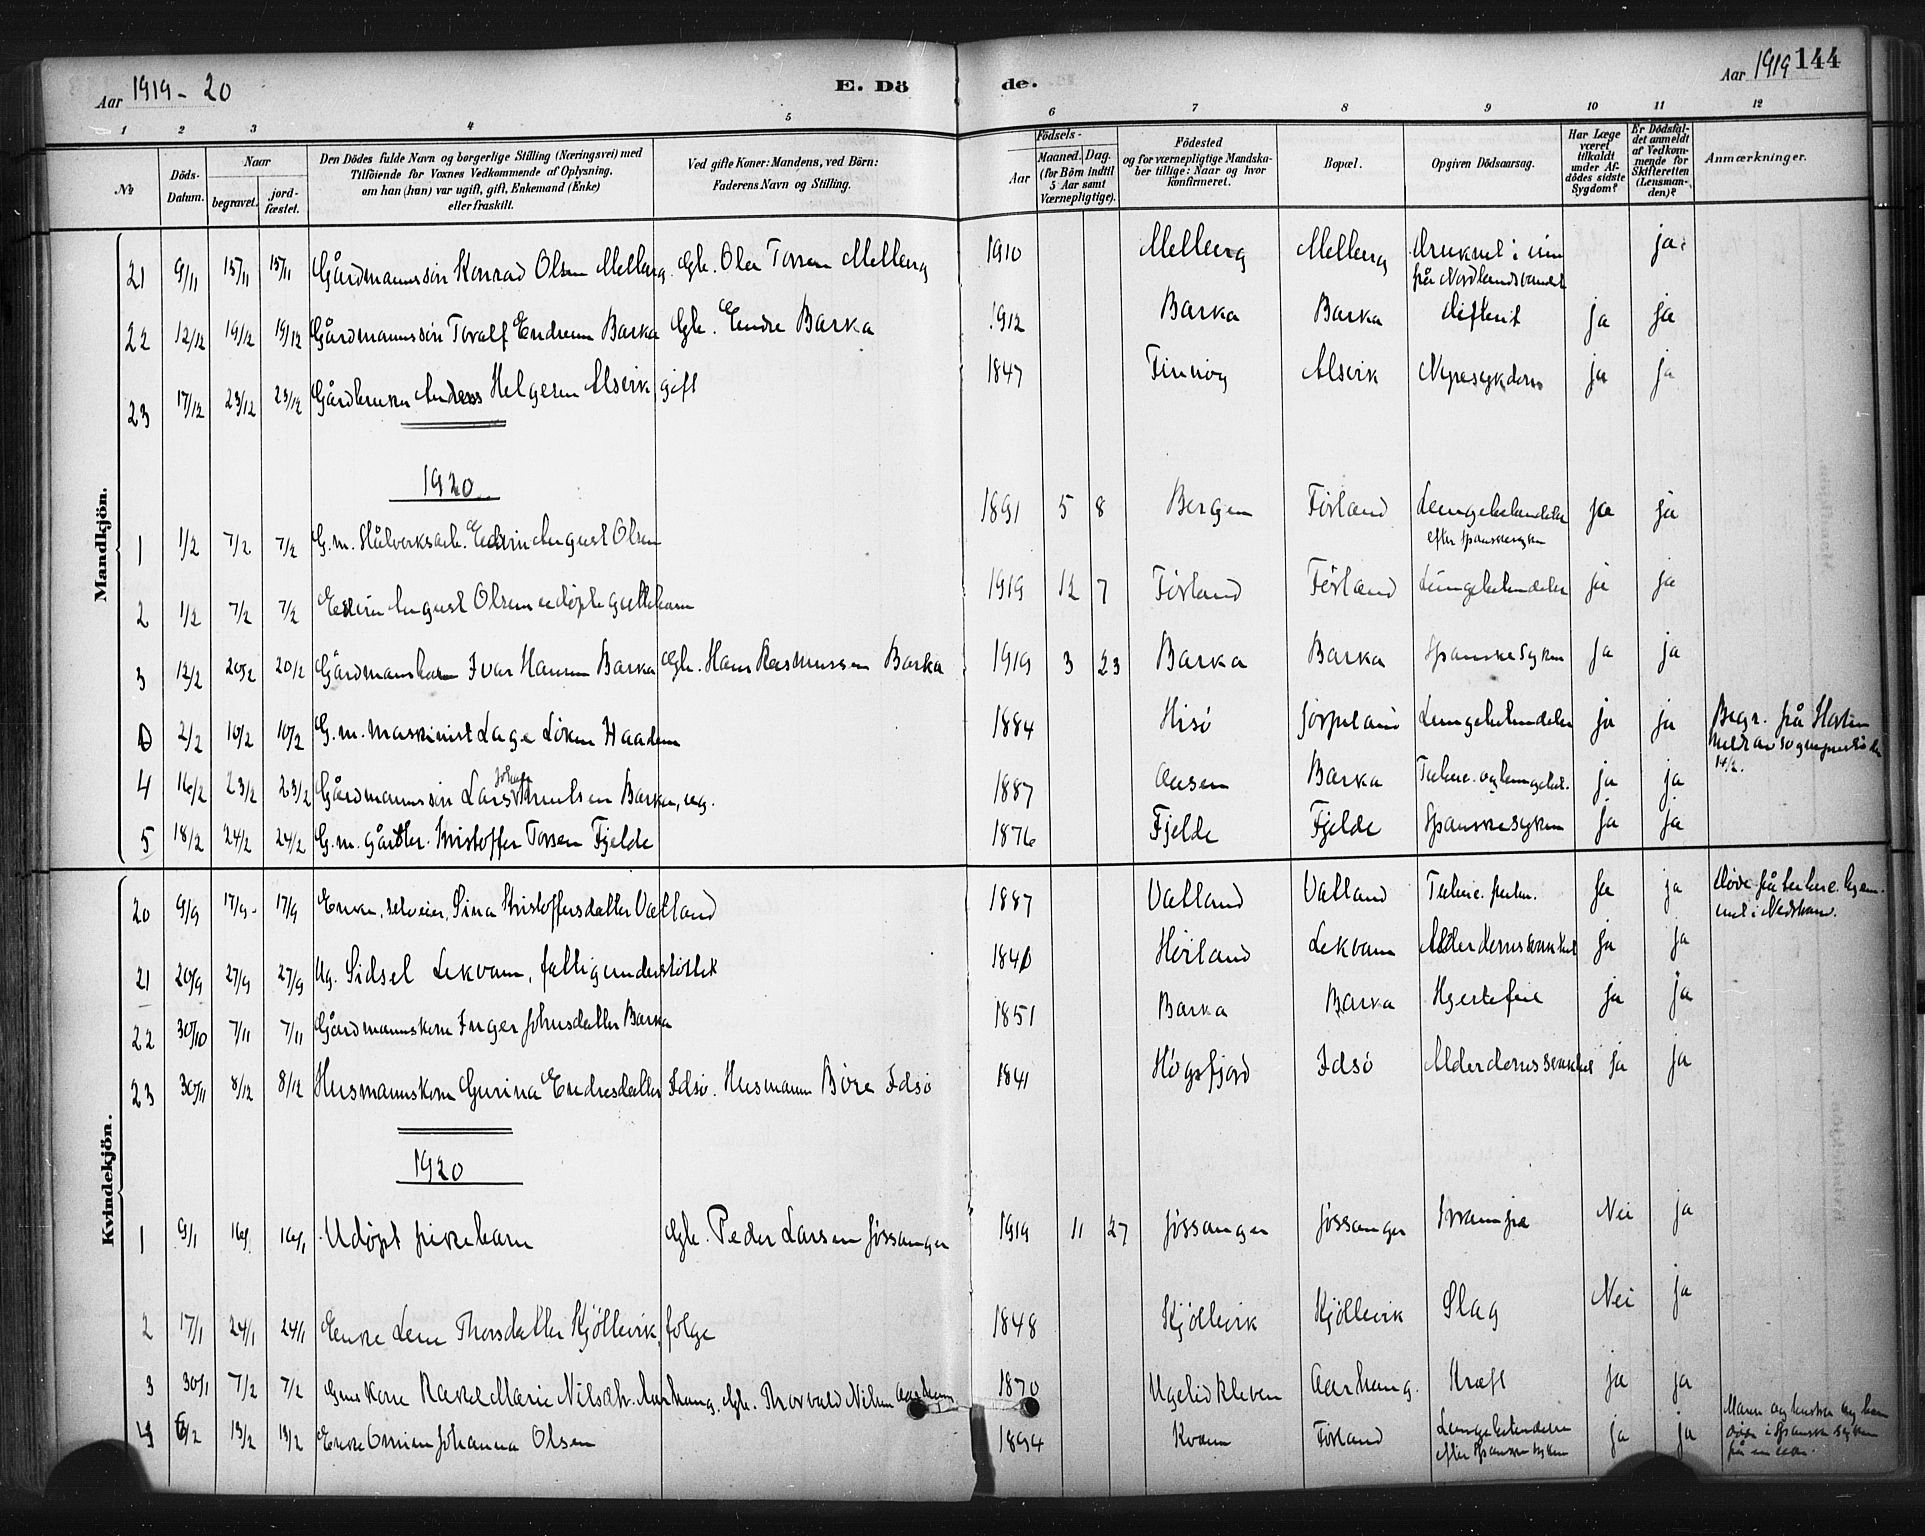 Aar 1919-20 E. Dö de. Aar 1919 144
1 2 3 4 5 6 7 8 9 10 11 12
No
Döds-Datum.
Naar
begravet.
jord-fæstet.
Den Dödes fulde Navn og borgerlige Stilling (Næringsvei) med
Tilföiende for Voxnes Vedkommende af Oplysning.
om han (hun) var ugift, gift, Enkemand (Enke)
eller fraskilt.
Ved gifte Koner: Mandens, ved Börn:
Faderens Navn og Stilling.
Födsels-
Aar
Maaned. Dag.
(for Börn indtil
5 Aar samt
Værnepligtige).
Födested
og for værnepligtige Mandska-
ber tillige: Naar og hvor
konfirmeret.
Bopæl.
Opgiven Dödsaarsag.
Har Læge
været
tilkaldt
under Af-
dödes sidste
Sygdom?
Er Dödsfal-
det anmeldt
af Vedkom-
mende for
Skifteretten
(Lensman-
den)?
Anmærkninger.
Mandkjön.
21 9/11 15/11 15/11 Gårdmannssön Konrad Olsen Melberg. Gbr. Ole Torsen Melberg 1910 Melberg Melberg Druknet i
på Nordlandsvandet ja
22 12/12 19/12 19/12 Gårdmannssön Toralf Endresen Barka Gbr. Endre Barka 1912 Barka Barka Difterit ja ja
23 17/12 23/12 23/12 Gårdbruker Anders Helgesen Alsvik, gift 1847 Finnøy Alsvik Nyresykdom ja ja
1920
1 1/2 7/2 7/2 G.m. Stålverksarb. Edvin August Olsen 1891 5 8 Bergen Förland Lungebetændelse
efter spanskesyken ja ja
2 1/2 7/2 7/2 Edvin August Olsen udøpt guttebarn 1919 12 7 Förland Förland Lungebetændelse ja ja
3 12/2 20/2 20/2 Gårdmansbarn Ivar Hansen Barka Gbr. Hans Rasmussen Barka 1919 3 23 Barka Barka Spanskesyken ja ja
2/2 10/2 10/2 G.m. Maskinist Lage Löken Haadem 1884 Hisö Jörpeland Lungebetændelse ja ja Begr. på
14/2.
4 16/2 23/2 23/2 Gårdmannssön Lars Johan Barka, ug. 1887 Aasen Barka Tuberc. og lungebet. ja ja
5 18/2 24/2 24/2 G.m. Gårdbr. Kristoffer Torsen Fjelde 1876 Fjelde Fjelde Spanskesyken ja ja
Kvindekjön.
20 9/9 17/9 17/9 Enke, selveier, Sina Kristoffersdatter Vatland 1887 Vatland Vatland Tuberc. pulm. ja ja Döde på tuberc. hjem-
met i Nedstrand.
21 20/9 27/9 27/9 Ug. Sidsel Lekvam, fattigunderstöttet 1840 Hörland Lekvam Alderdomssvakhet ja ja
22 30/10 7/11 7/11 Gårdmannskone Inger Johnsdatter Barka 1851 Barka Barka Hjertefeil ja ja
23 30/11 8/12 8/12 Husmannskone Gurina Endresdatter Idsö. Husmann Böre Idsö 1841 Högsfjord Idsö Alderdomssvakhet ja ja
1920
1 9/1 16/1 16/1 Udöpt pikebarn Gbr. Peder Larsen Jössanger 1919 11 27 Jössanger Jössanger Krampe Nei ja
2 17/1 24/1 24/1 Enke Lene Thorsdatter Kjöllevik, folge 1848 Kjöllevik Kjöllevik Slag Nei ja
3 30/1 7/2 7/2 Kone Rakel Marie Nilsdtr. Aarhaug. Gbr. Thorvald Nilsen Aarhaug 1870 Ugelidkleven Aarhaug. Kræft ja ja
4 6/2 13/2 13/2 Enke Johanna Olsen 1894 Kvam Förland Lungebetændelse
efter spanske syken ja ja Mann og hustru og barn
döde i Spanske syken
på en uke.